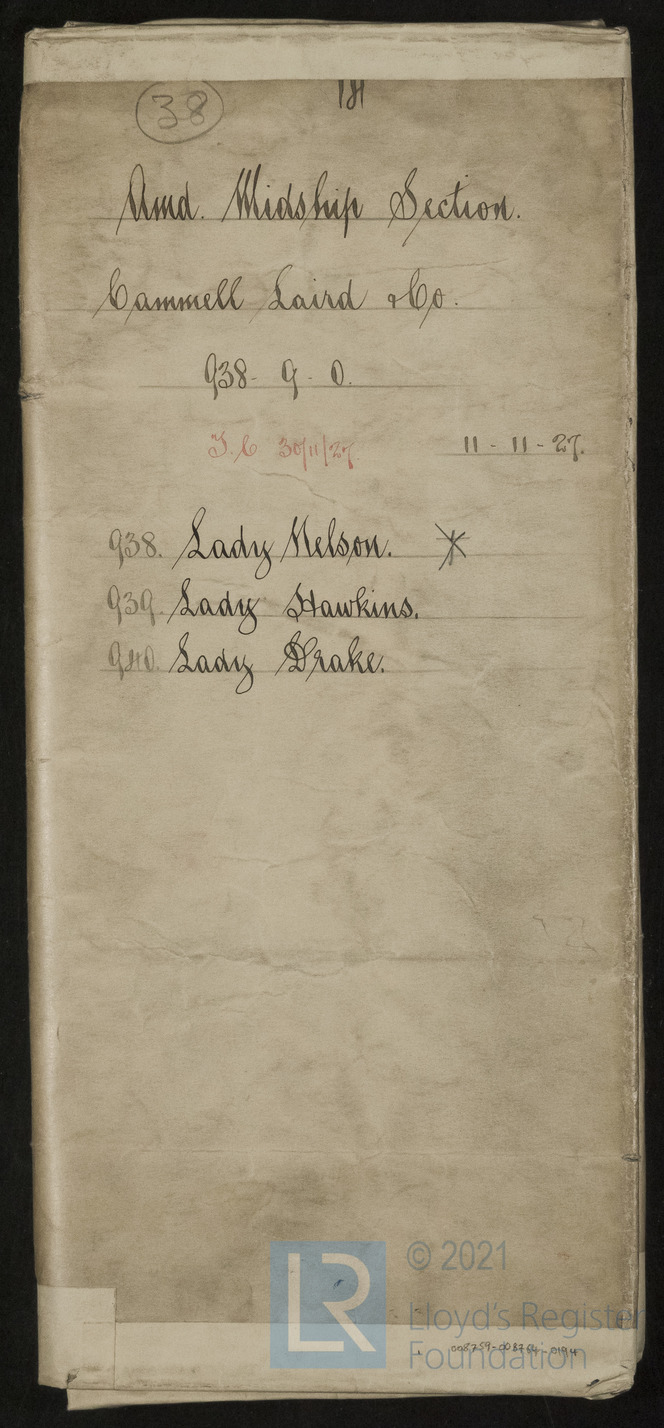 38
181
Amd. Midship Section.
Cammell Laird & Co.
938 - 9 - 0.
J.C 30/11/27. 11 - 11 - 27.
938. Lady Nelson.
939. Lady Hawkins.
940. Lady Drake.
LR
© 2021
Lloyd's Register
Foundation
008759-008764-0194